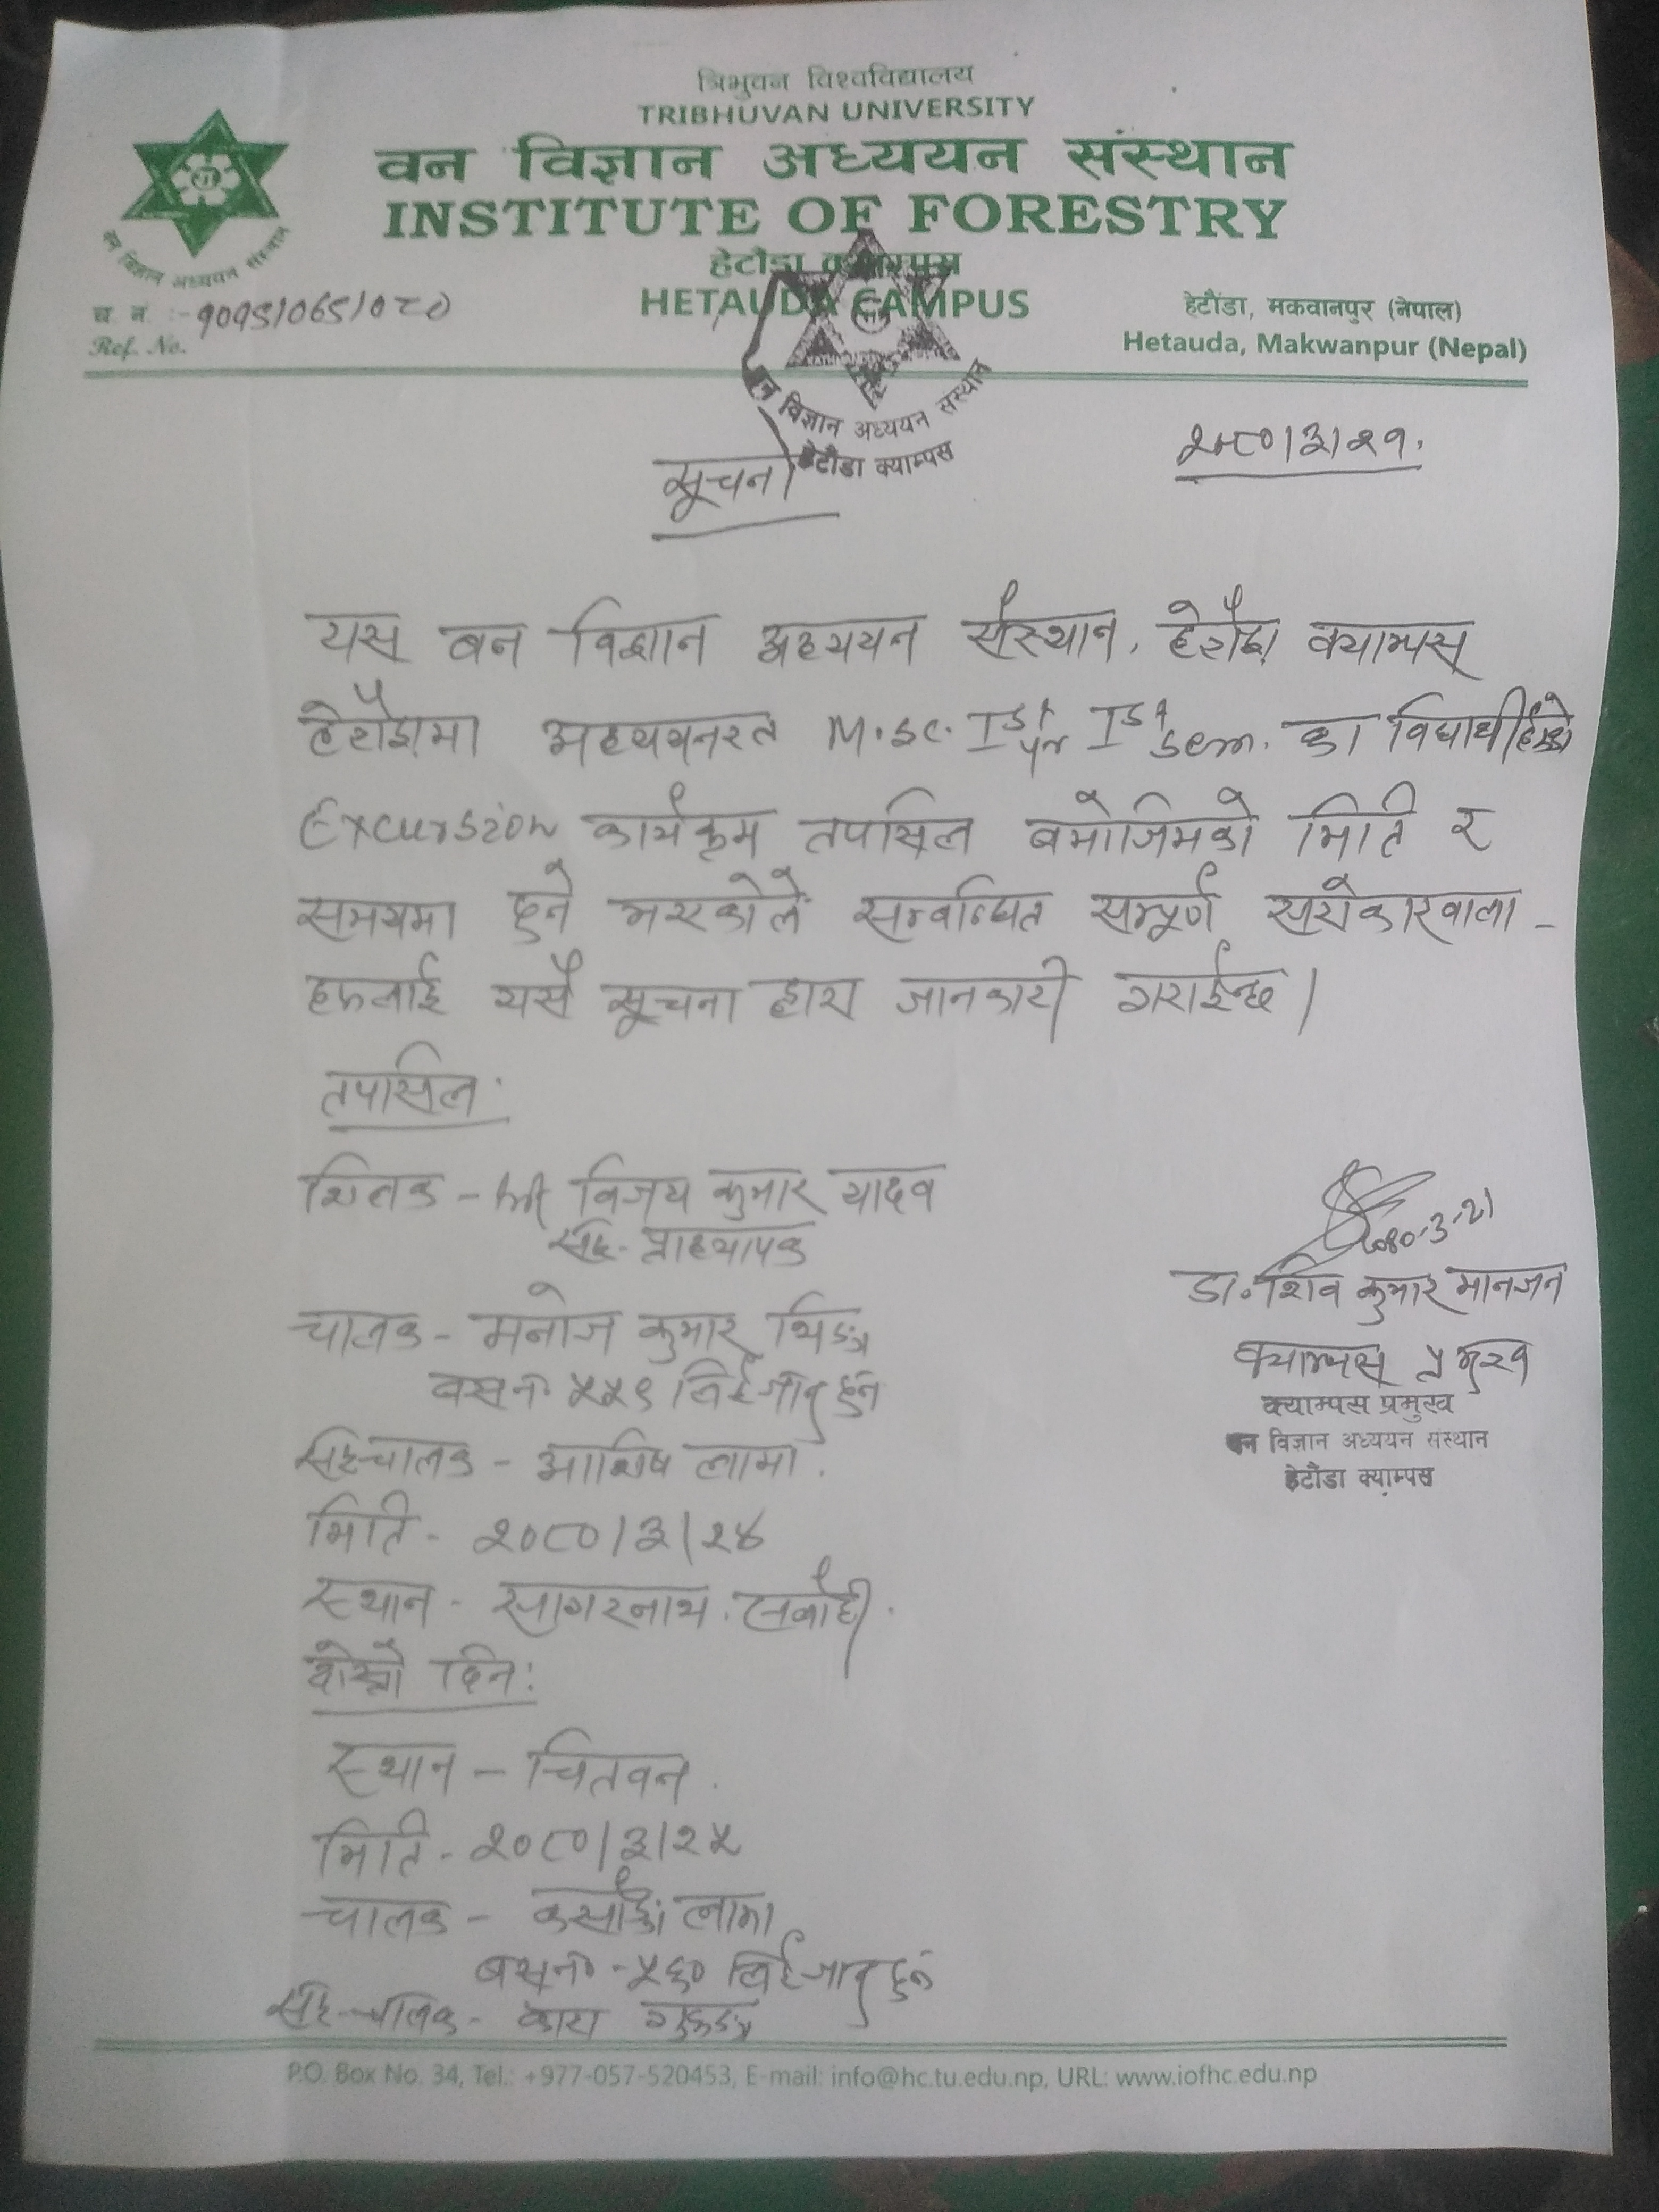 त्रिभुवन विश्वविद्यालय
TRIBHUVAN UNIVERSITY
वन विज्ञान अध्ययन संस्थान
INSTITUTE OF FORESTRY
हेटौंडा क्याम्पस
HETAUDA CAMPUS
वन विज्ञान अध्ययन संस्थान
च. नं. :-
Ref. No.
हेटौंडा, मकवानपुर (नेपाल)
Hetauda, Makwanpur (Nepal)
वन विज्ञान अध्ययन संस्थान
हेटौंडा क्याम्पस
२०८०।३।२१.
सूचना
यस वन विज्ञान अध्ययन संस्थान, हेटौंडा क्याम्पस
हेटौंडामा अध्ययनरत M.Sc. Ist yr Ist sem. का विद्यार्थीहरूको
Excursion कार्यक्रम तपसिल बमोजिमको मिति र
समयमा हुने भएकोले सम्बन्धित सम्पूर्ण सरोकारवाला-
हरूलाई यसै सूचना द्वारा जानकारी गराईन्छ।
तपसिल:
शिक्षक - श्री विजय कुमार यादव
सह. प्राध्यापक
चालक - मनोज कुमार थिङ्ग
बस नं ५५९ लिई जानु हुन
सहचालक - आशिष लामा.
मिति - २०८०।३।२४
स्थान - सागरनाथ.
दोस्रो दिन:
स्थान - चितवन.
मिति - २०८०।३।२५
चालक - लामा
बस नं - ५६० लिई जानु हुन
सह-चालक -
2080-3-21
डा. शिव कुमार मानजन
क्याम्पस प्रमुख
क्याम्पस प्रमुख
वन विज्ञान अध्ययन संस्थान
हेटौंडा क्याम्पस
P.O. Box No. 34, Tel.: +977-057-520453, E-mail: info@hc.tu.edu.np, URL: www.iofhc.edu.np